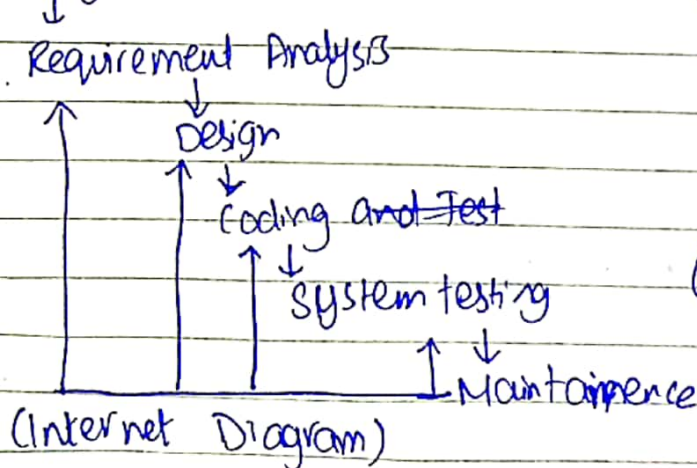 Requirement Analysis
Design
Coding and Test
System testing
Maintainpence
(Internet Diagram)